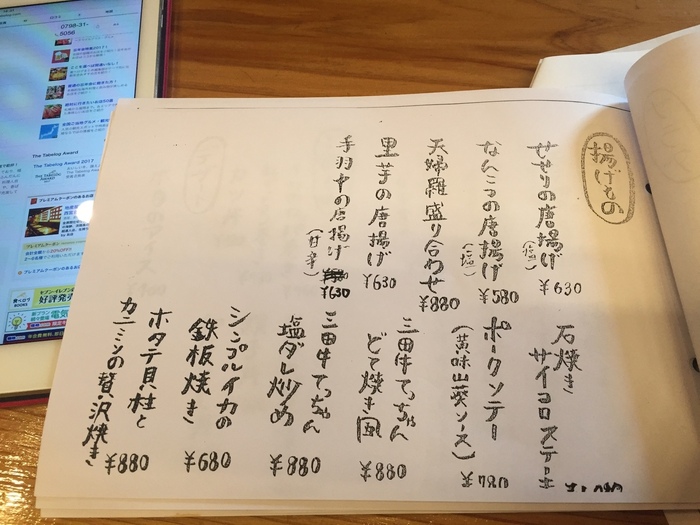 揚げもの
せせりの唐揚げ
(塩)
¥630
なんこつの唐揚げ
(塩)
¥580
天婦羅盛り合わせ
¥880
里芋の唐揚げ
¥630
手羽中の唐揚げ
(甘辛)
¥630
石焼き
サイコロステーキ
ポークソテー
(黄味山葵ソース)
¥780
三田牛てっちゃん
どて焼き風
¥880
三田牛てっちゃん
塩ダレ炒め
¥880
シンプルイカの
鉄板焼き
¥680
ホタテ貝柱と
カニミソの贅沢焼き
¥880
0798-31-
5056
The Tabelog Award
The Tabelog Award 2017